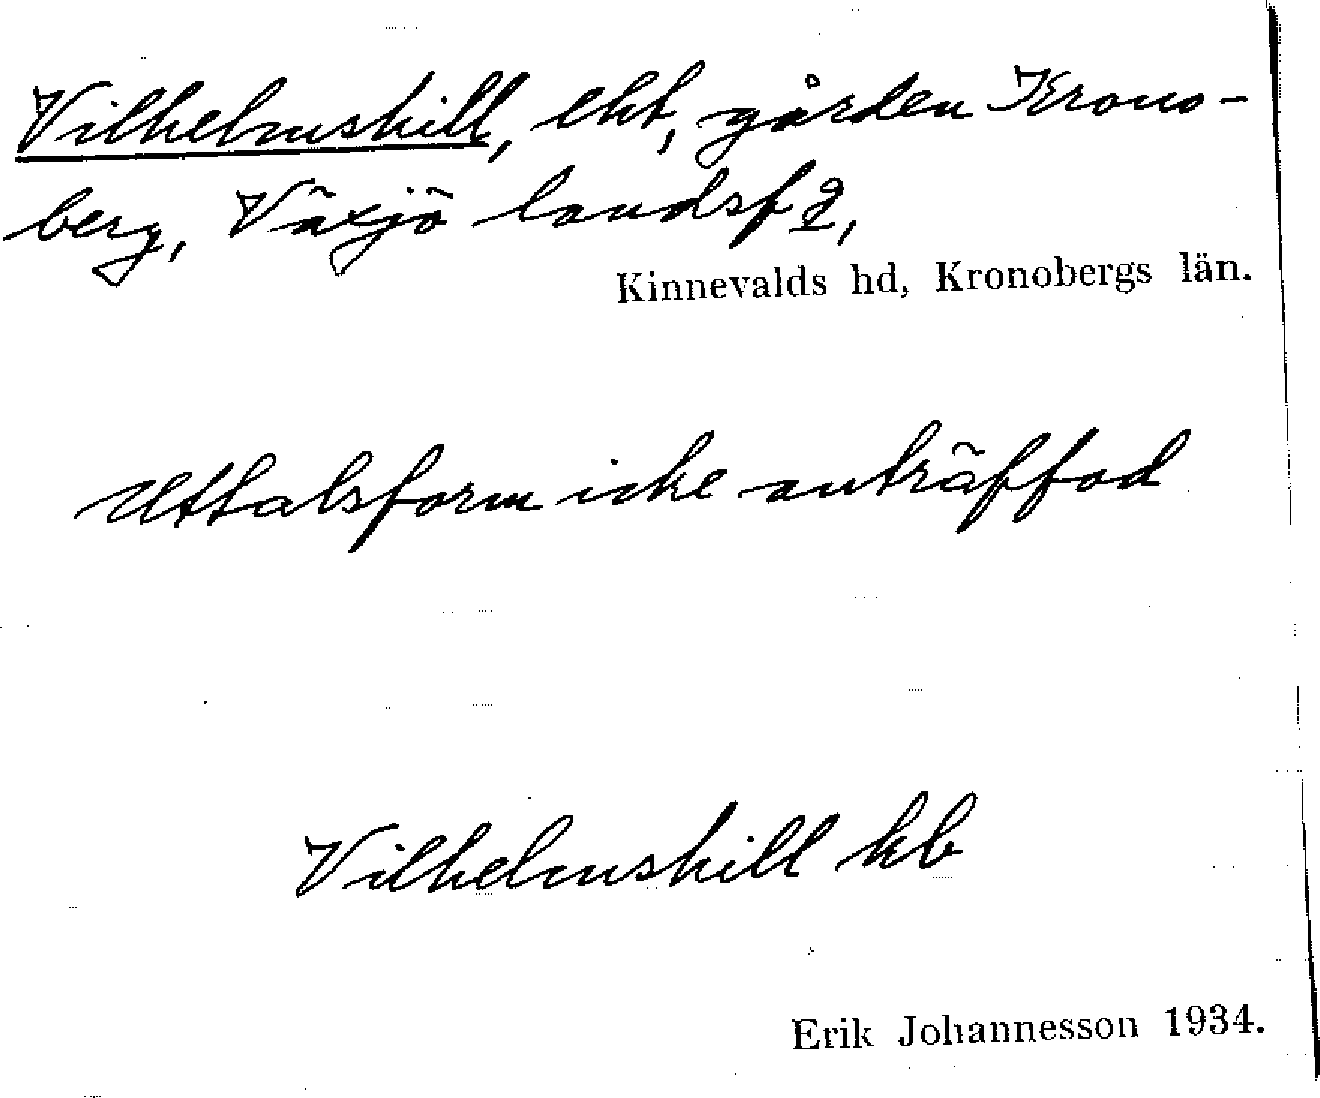 Vilhelmshill, lht, gården Krono-
berg, Växjö landsf g,
Kinnevalds hd, Kronobergs län.
Uttalsform icke anträffad
Vilhelmshill kb
Erik Johannesson 1934.